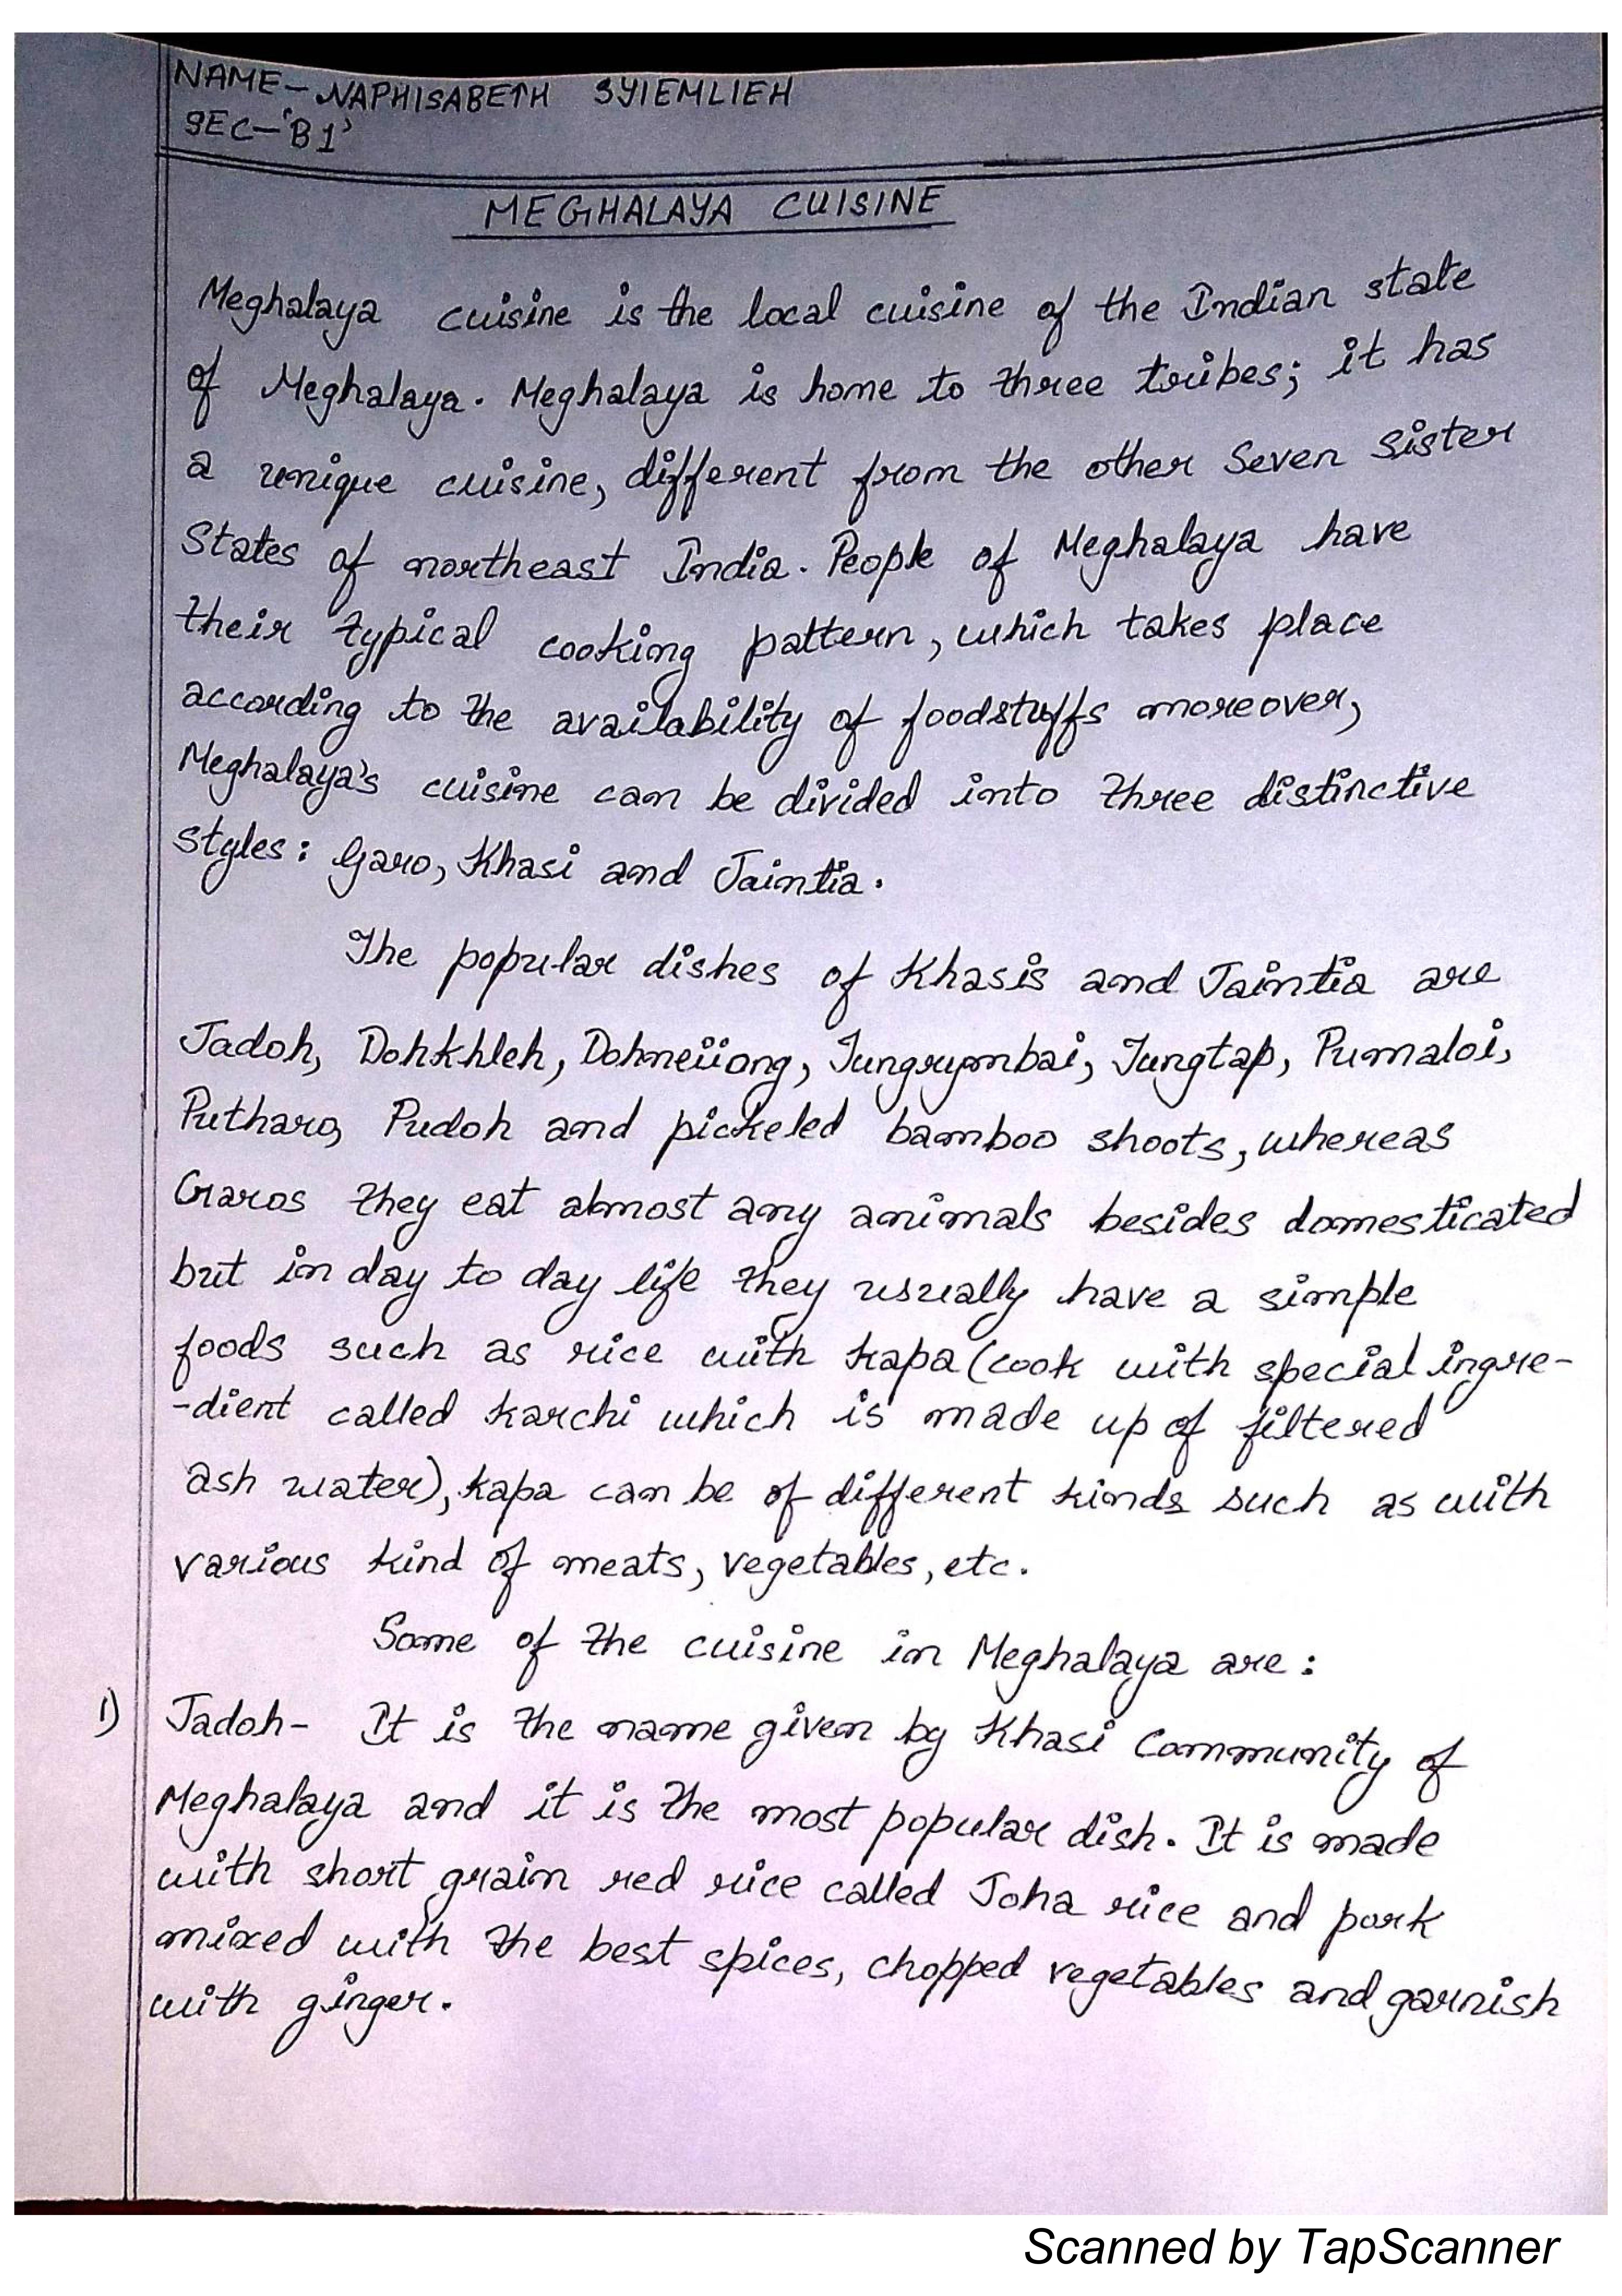 NAME- NAPHISABETH SYIEMLIEH
SEC-'B1'
MEGHALAYA CUISINE
Meghalaya cuisine is the local cuisine of the Indian state
of Meghalaya. Meghalaya is home to three tribes; it has
a unique cuisine, different from the other Seven Sister
States of northeast India. People of Meghalaya have
their typical cooking pattern, which takes place
according to the availability of foodstuffs moreover,
Meghalaya's cuisine can be divided into three distinctive
styles: Garo, Khasi and Jaintia.
The popular dishes of Khasis and Jaintia are
Jadoh, Dohkhleh, Dohneiiong, Tungrymbai, Tungtap, Pumaloi,
Putharo, Pudoh and pickeled bamboo shoots, whereas
Garos they eat almost any animals besides domesticated
but in day to day life they usually have a simple
foods such as rice with kapa (cook with special ingre-
-dient called karchi which is made up of filtered
ash water), kapa can be of different kinds such as with
various kind of meats, vegetables, etc.
Some of the cuisine in Meghalaya are :
1) Jadoh- It is the name given by Khasi Community of
Meghalaya and it is the most popular dish. It is made
with short grain red rice called Joha rice and pork
mixed with the best spices, chopped vegetables and garnish
with ginger.
Scanned by TapScanner